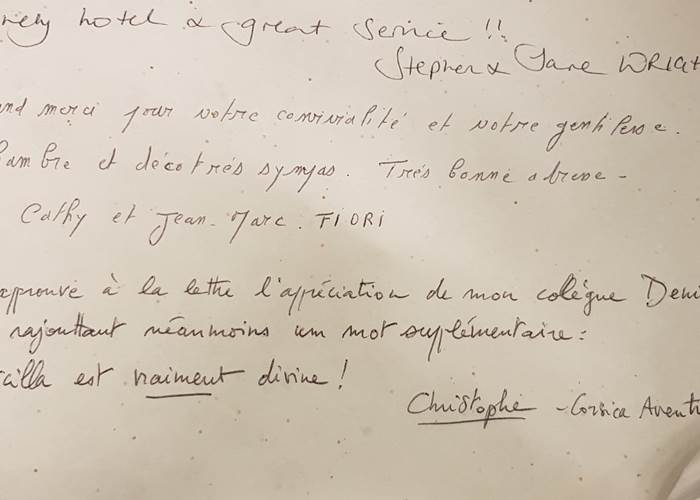 hotel & great service !!
Stephen & Jane
merci pour votre convivialité et votre gentillesse.
et déco très sympas. Très bonne adresse -
Cathy et Jean-Marc. FIORI
à la lettre l'appréciation de mon colègue
rajouttant néanmoins un mot supplémentaire :
est vraiment divine !
Christophe - Corsica